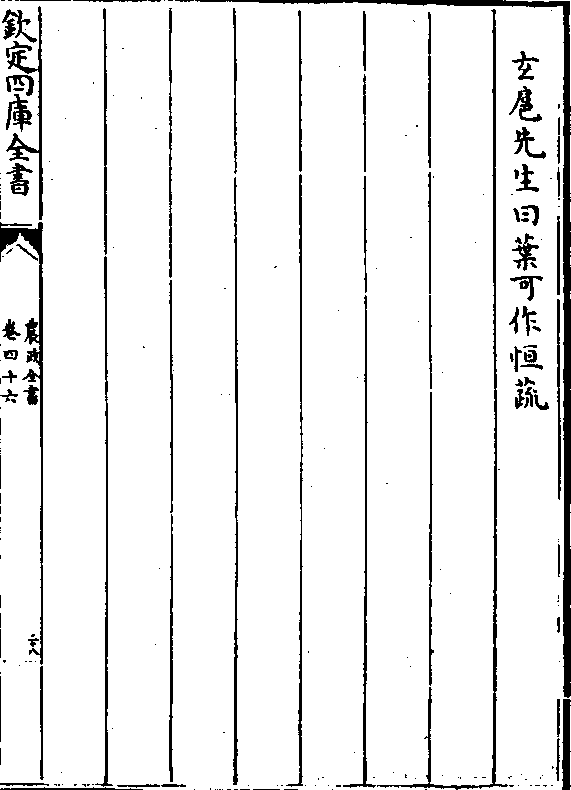 玄扈先生曰葉可作恒蔬
欽定四庫全書
農政全書
卷四十六
二八